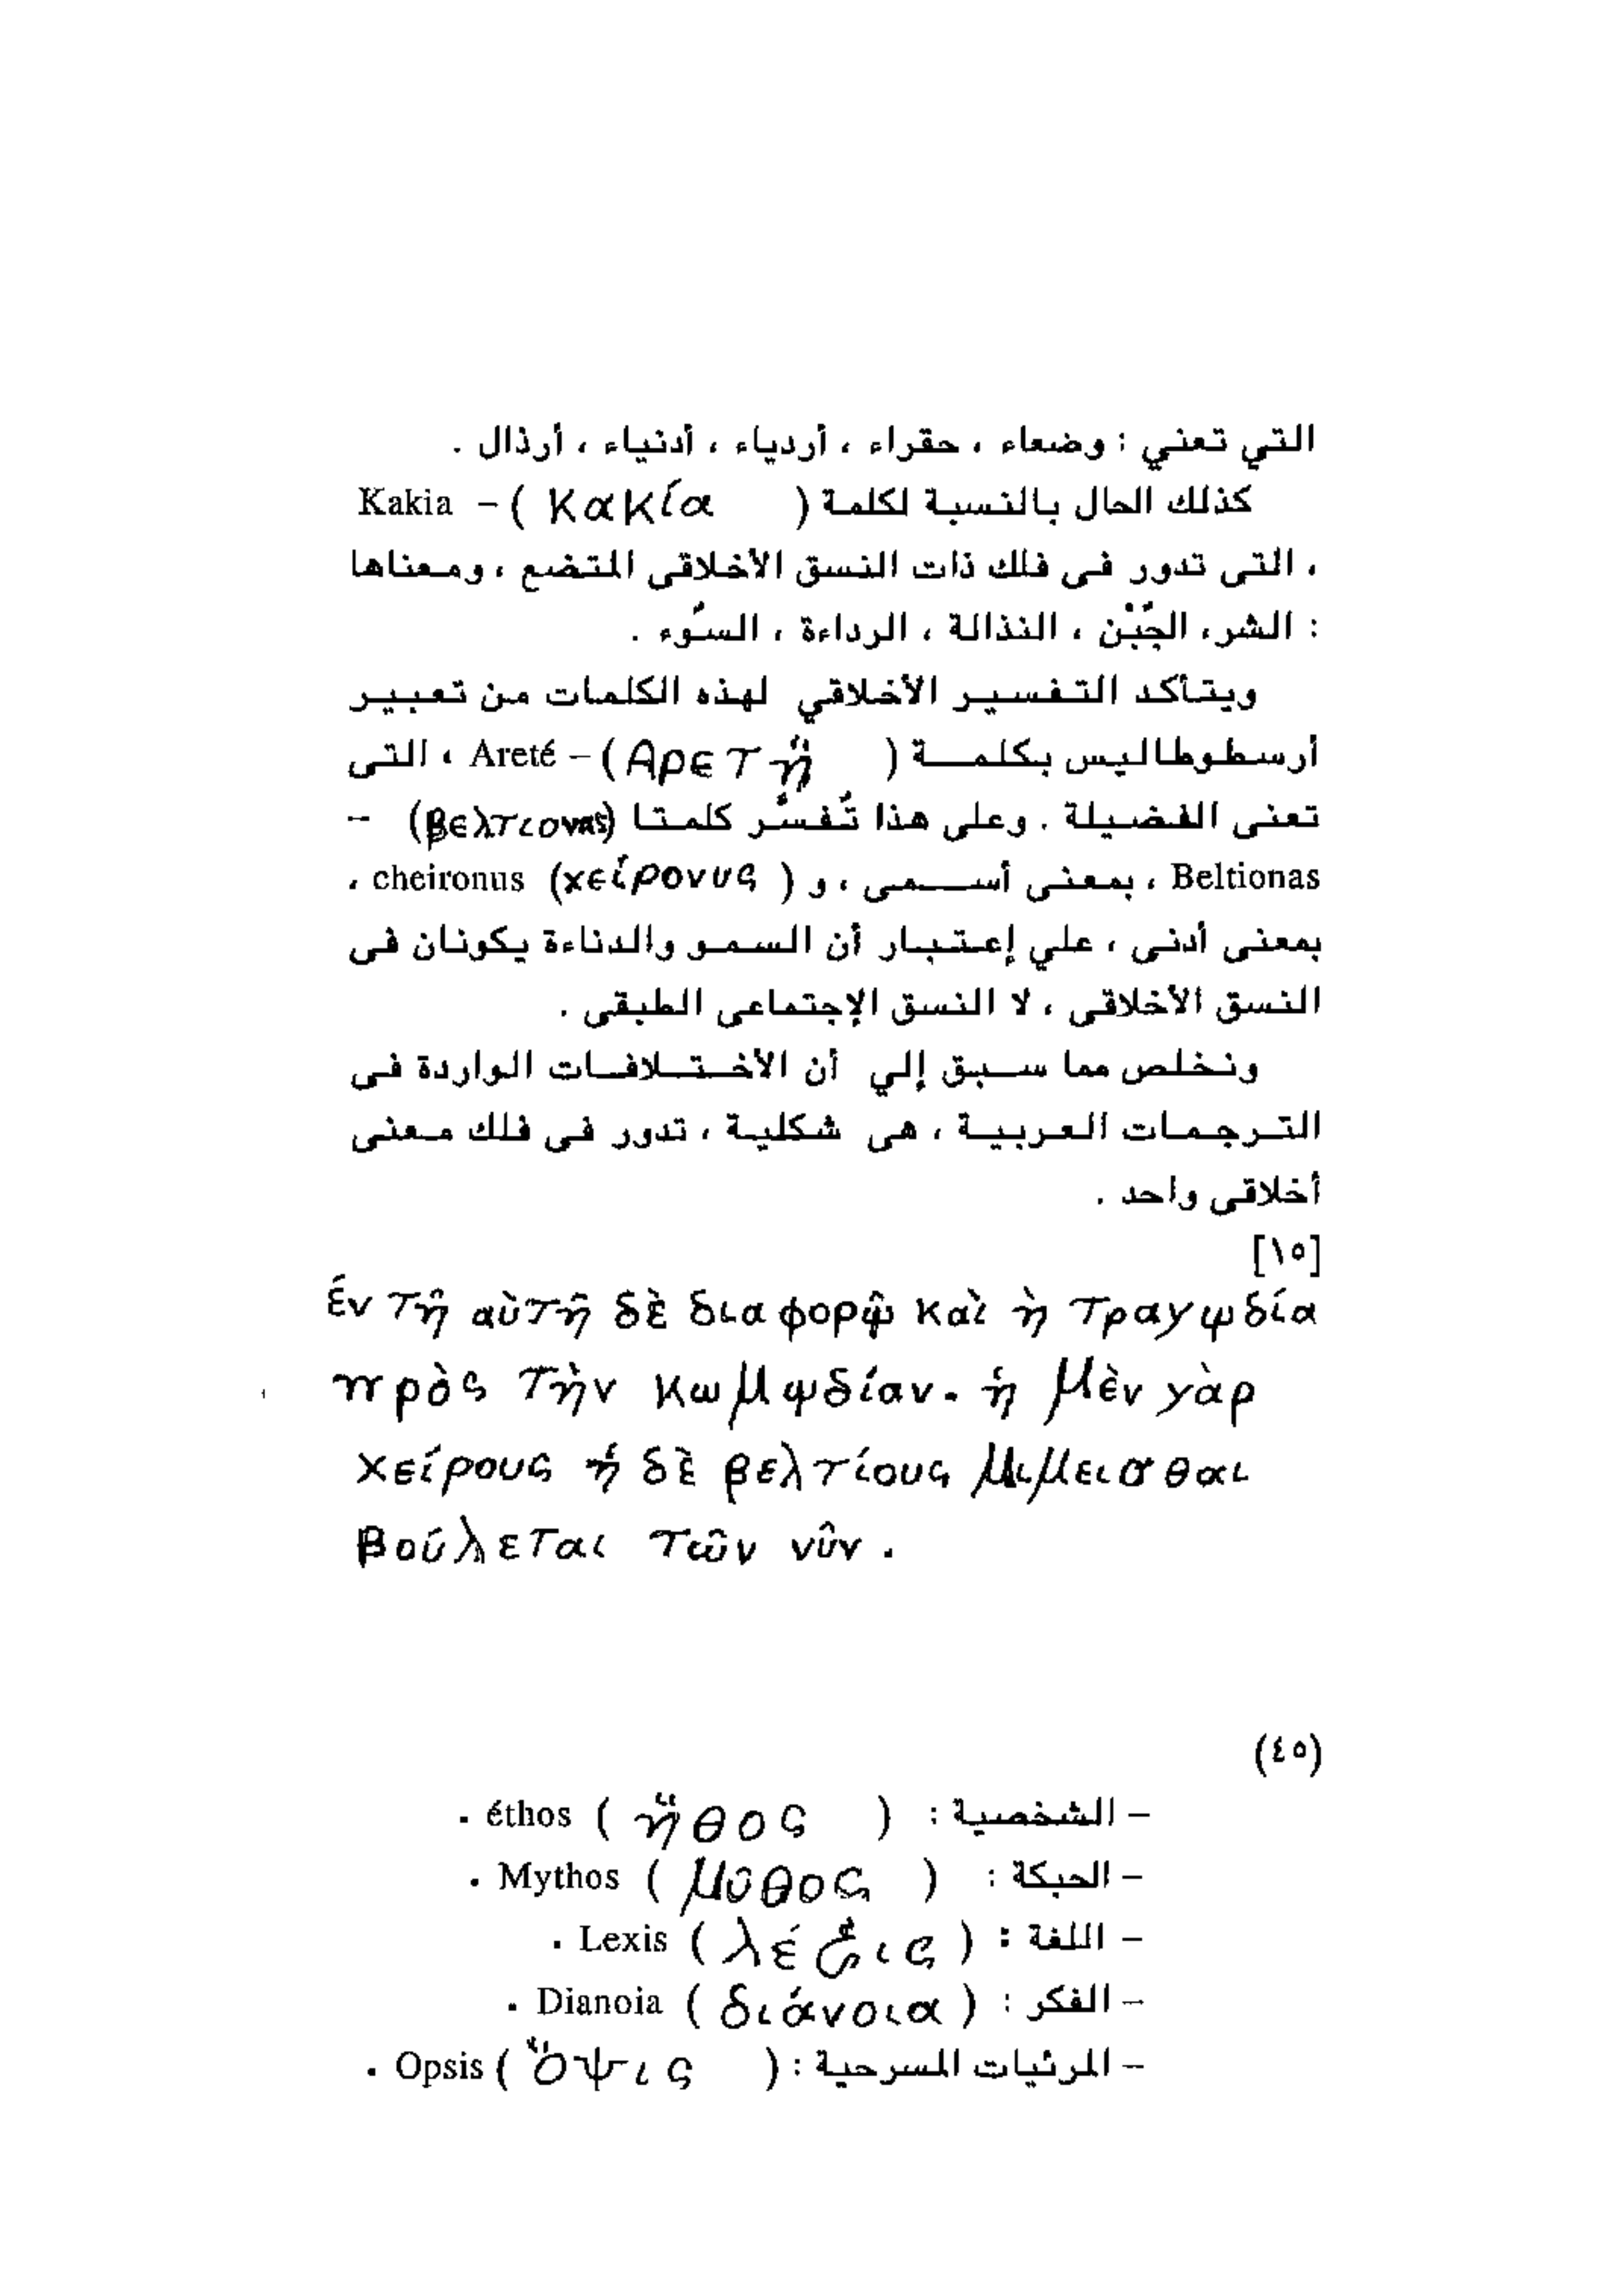 التي تعني : وضعاء ، حقراء ، أردياء ، أدنياء ، أرذال .
كذلك الحال بالنسبة لكلمة ( κακία ) – Kakia
، التى تدور فى فلك ذات النسق الأخلاقى المتضع ، ومعناها
: الشر، الجُبْن ، النذالة ، الرداءة ، السوُء .
ويتأكد التفسير الأخلاقي لهذه الكلمات من تعبير
أرسطوطاليس بكلمة ( Αρετη ) – Areté ، التى
تعنى الفضيلة . وعلى هذا تُفسُر كلمتا (βελτιονας) –
Beltionas ، بمعنى أسمى ، و ( χείρονυς ) cheironus ،
بمعنى أدنى ، علي إعتبار أن السمو والدناءة يكونان فى
النسق الأخلاقى ، لا النسق الإجتماعى الطبقى .
ونخلص مما سبق إلي أن الأختلافات الواردة فى
الترجمات العربية ، هى شكلية ، تدور فى فلك معنى
أخلاقى واحد .
[١٥]
έν τῆ αὐτῆ δὲ διαφορῷ καὶ ἡ τραγῳδία
πρὸς τὴν κωμῳδίαν. ἡ μὲν γὰρ
χείρους ἡ δὲ βελτίους μιμεισθαι
βούλεται τῶν νῦν .
(٤٥)
– الشخصية : ( ἤθος ) éthos .
– الحبكة : ( μῦθος ) Mythos .
– اللغة : ( λέξις ) Lexis .
– الفكر : ( διάνοια ) Dianoia .
– المرئيات المسرحية : ( Ὄψις ) Opsis .